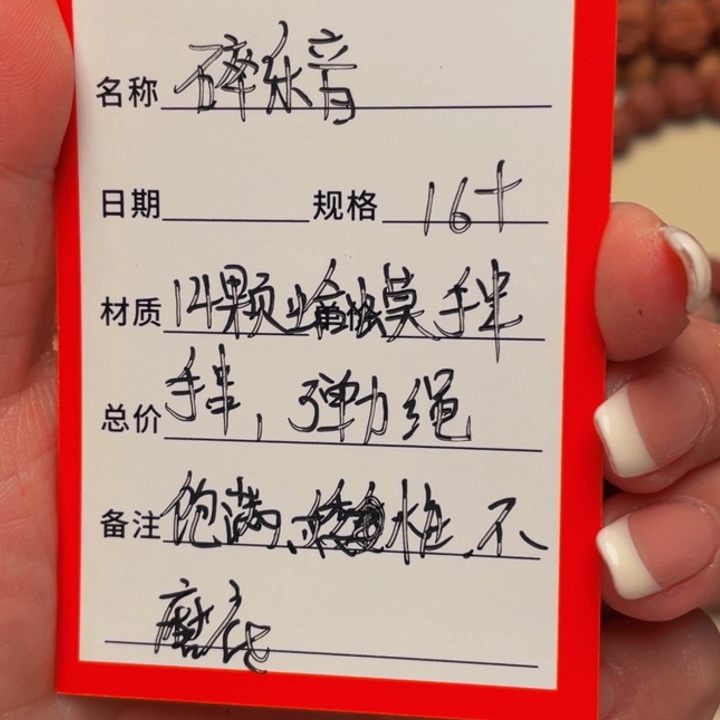 名称 碎乐音
日期 规格 16+
材质 14颗 手串
总价 手串,弹力绳
备注 饱满、桩,不
磨底